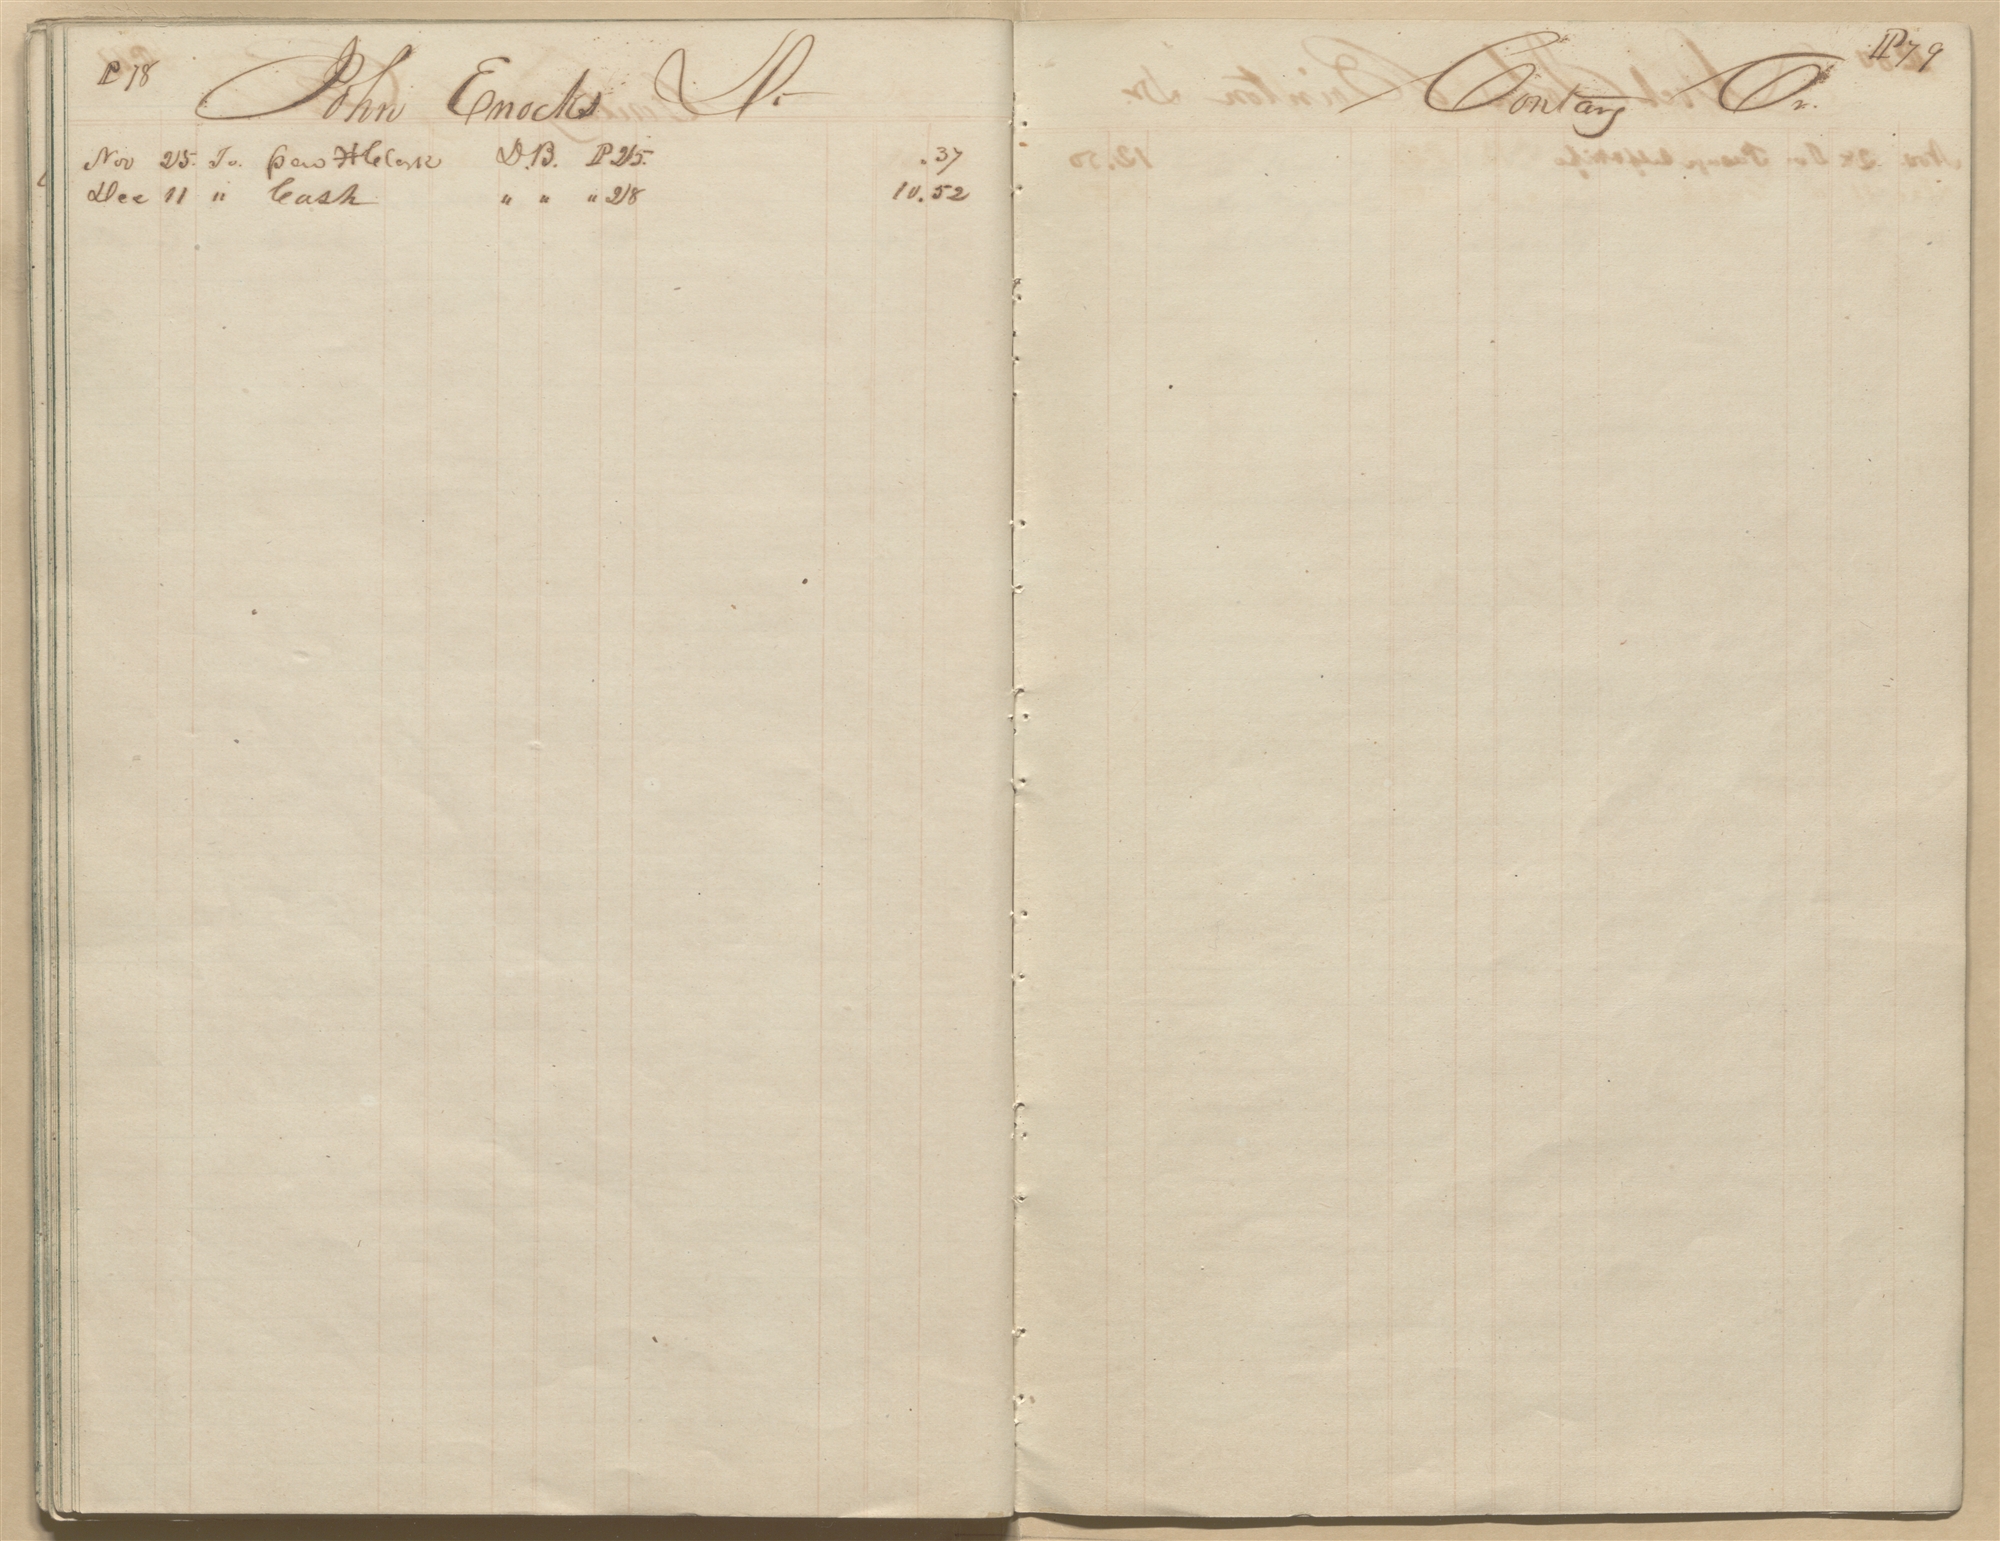 P 78
John Enocks Dr
Nov 25. To. H Clark D.B. P 25. .37
Dec 11 " Cash " " " 28 10.52
P 79
Contary Cr.